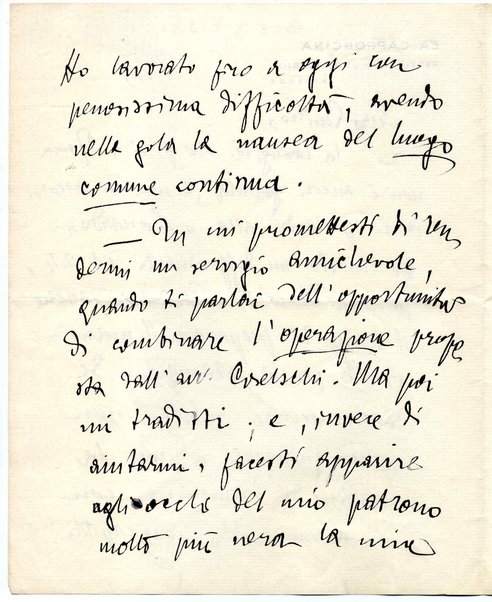 Ho lavorato fino a oggi con
penosissima difficoltà, avendo
nella gola la nausea del luogo
comune continua.
— Tu mi promettesti di ren
dermi un servigio amichevole,
quando ti parlai dell'opportunità
di combinare l'operazione propo
sta dall'avv. Coselschi. Ma poi
mi tradisti; e, invece di
aiutarmi, facesti apparire
agli occhi del mio patrono
molto più nera la mia
LA CAPPONCINA